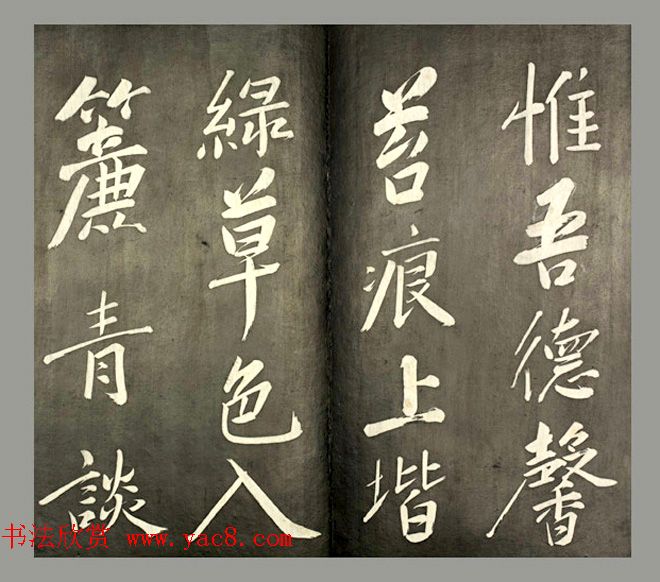 惟吾德馨
苔痕上堦
綠草色入
簾青談
书法欣赏 www.yac8.com